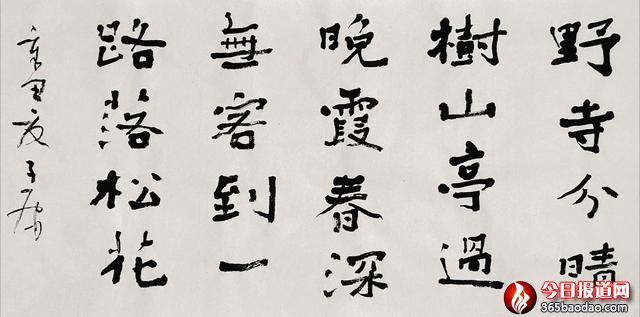 野寺分晴
樹山亭過
晚霞春深
無客到一
路落松花
辛丑夏子
今日报道网
365baodao.com